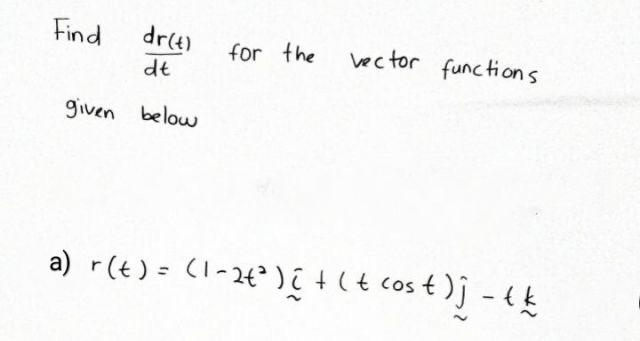 Find dr(t)/dt for the vector functions
given below
a) r(t) = (1-2t²) i + (t cos t) j - t k